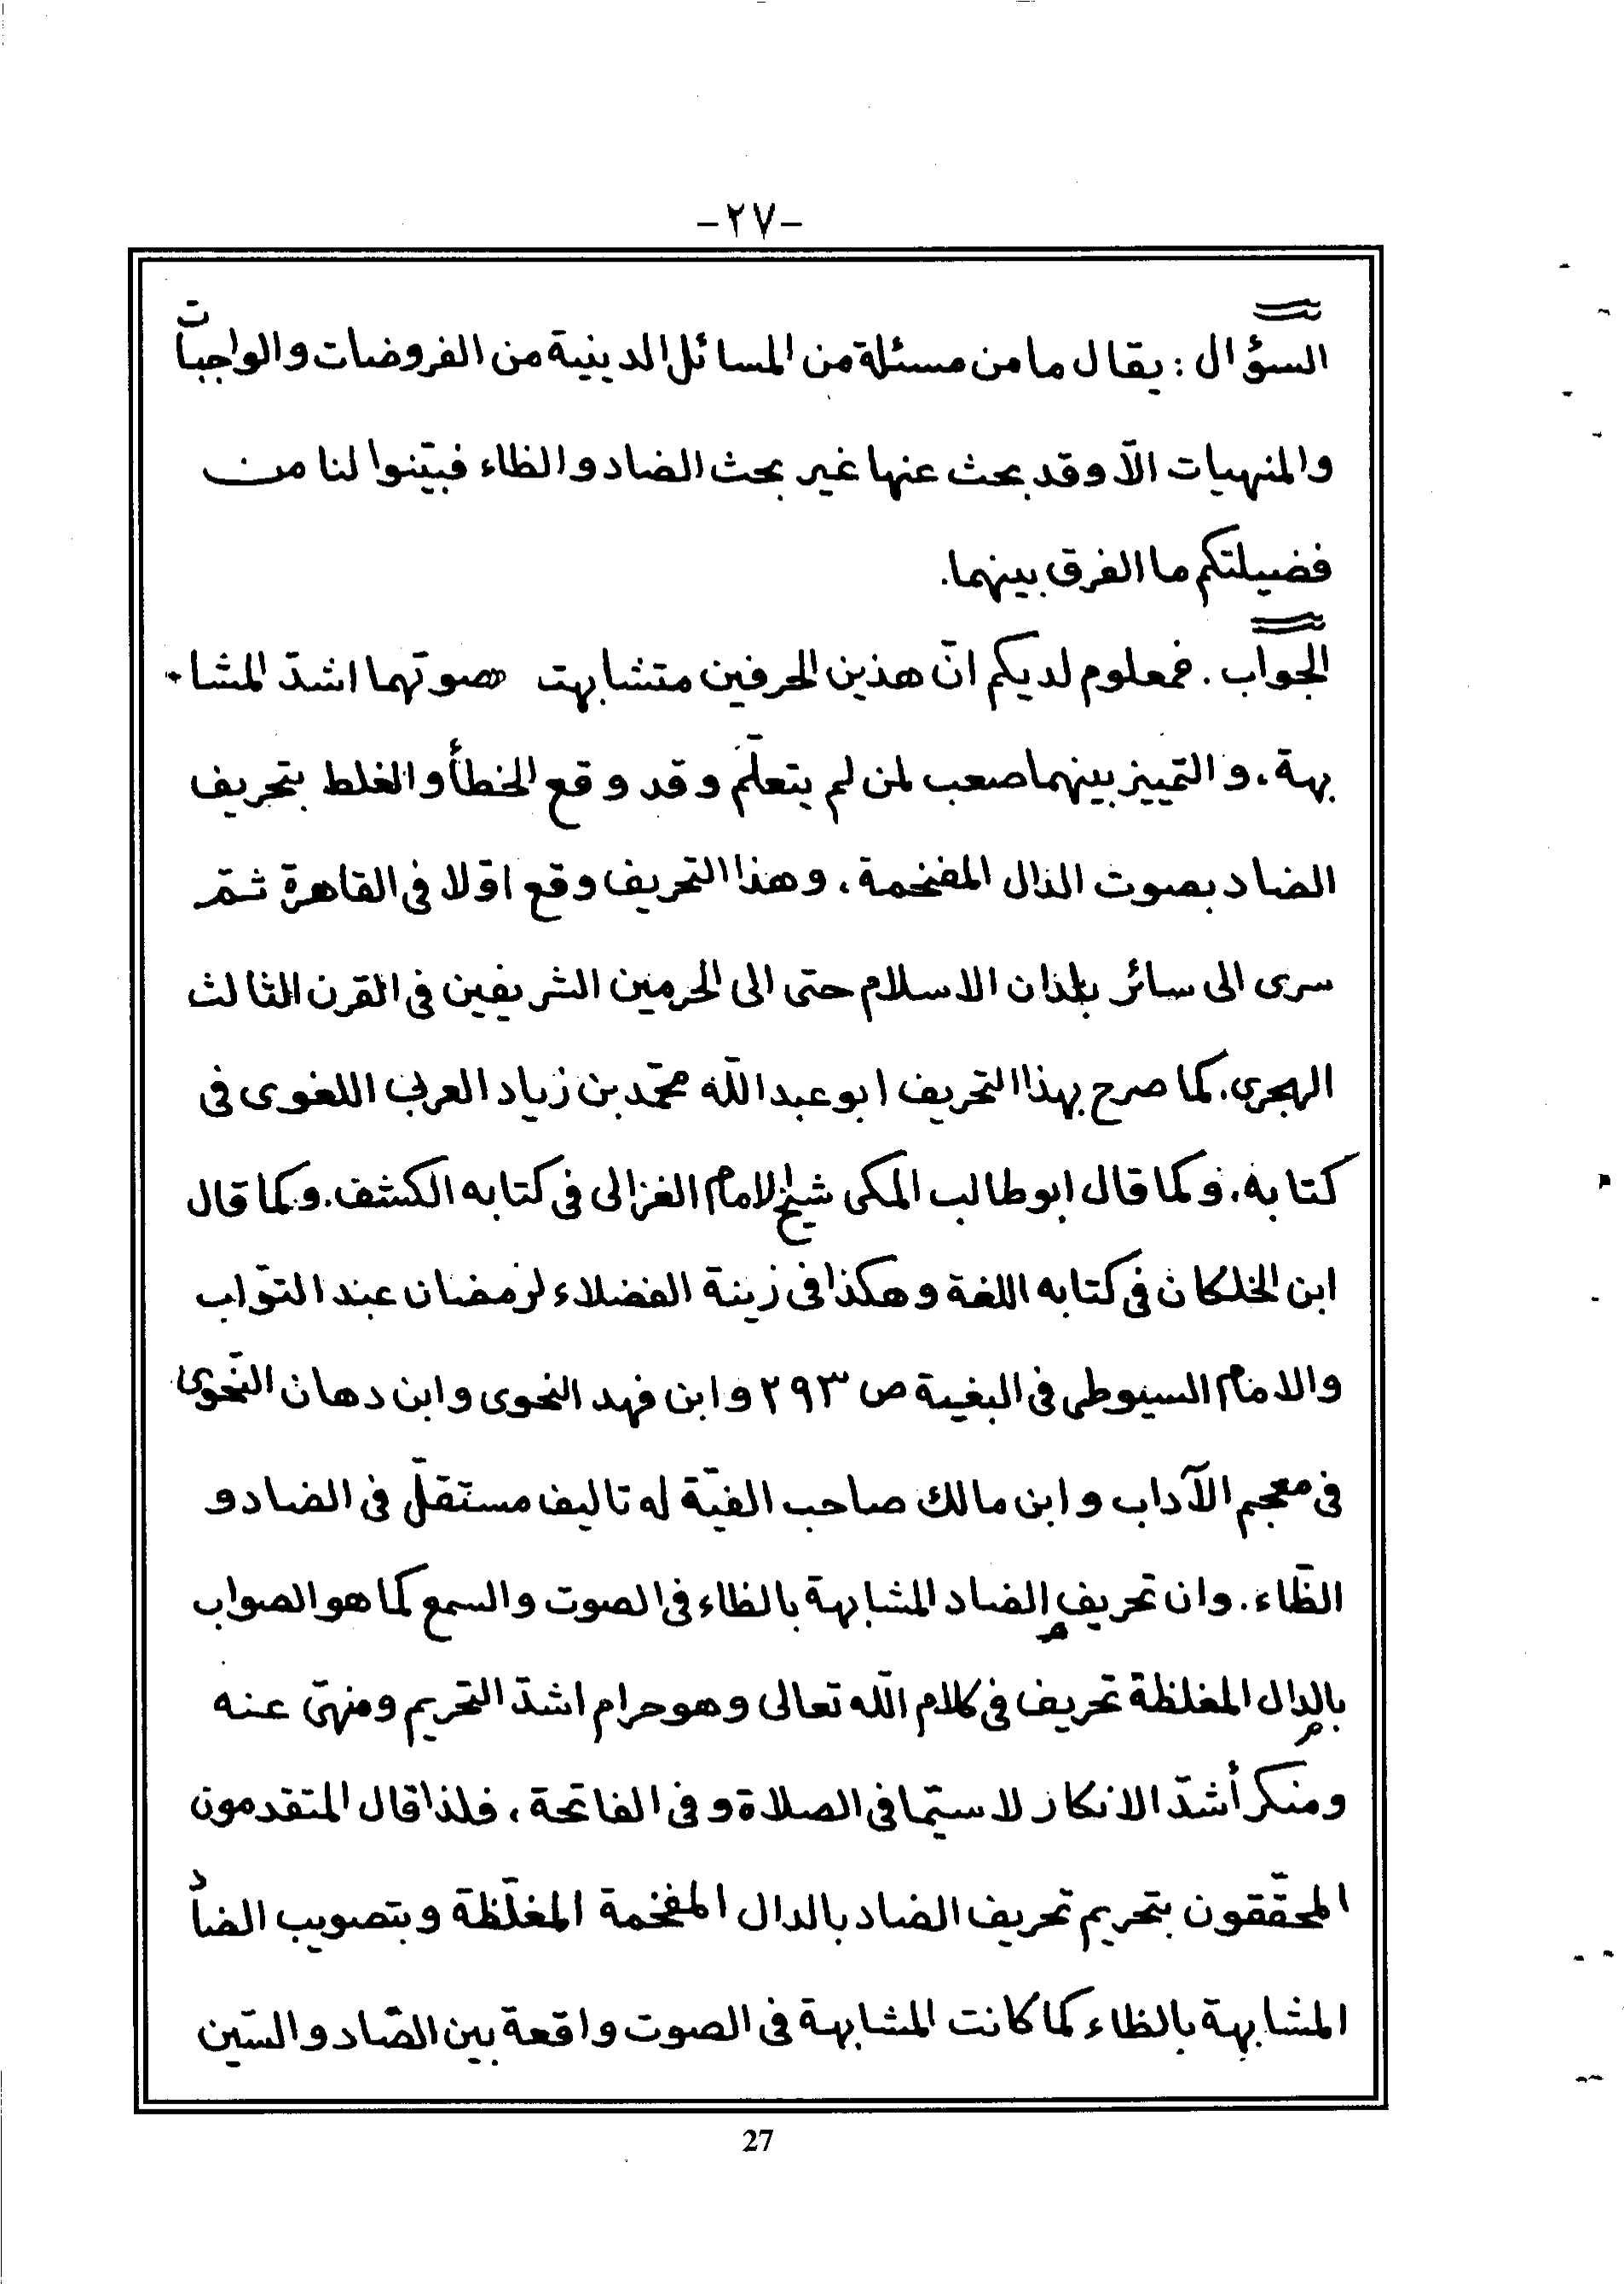 -٢٧-
السؤال : يقال ما من مسئلة من المسائل الدينية من الفروضات والواجبات
والمنهيات الاّ وقد بحث عنها غير بحث الضاد والظاء فبيّنوا لنا من
فضيلتكم ما الفرق بينهما.
الجواب . فمعلوم لديكم انّ هذين الحرفين متشابهت صوتهما اشدّ المشا
بهة ، والتمييز بينهما صعب لمن لم يتعلّم وقد وقع الخطأ والغلط بتحريف
الضاد بصوت الذال المفخمة ، وهذا التحريف وقع اوّلا فى القاهرة ثمّ
سرى الى سائر بلدان الاسلام حتى الى الحرمين الشريفين فى القرن الثالث
الهجرى. كما صرح بهذا التحريف ابو عبد اللّه محمّد بن زياد العربى اللغوى فى
كتابه ، وكما قال ابو طالب المكى شيخ الامام الغزالى فى كتابه الكشف. وكما قال
ابن الخلكان فى كتابه اللغة وهكذا فى زينة الفضلاء لرمضان عبد التوّاب
والامام السيوطى فى البغية ص ٢٩٣ وابن فهد النحوى وابن دهان النّحوى
فى معجم الآداب وابن مالك صاحب الفيّة له تاليف مستقلّ فى الضاد و
الظّاء . وان تحريف الضاد المشابهة بالظاء فى الصوت والسمع كما هو الصواب
بالدال المغلظة تحريف فى كلام اللّه تعالى وهو حرام اشدّ التحريم ومنهىّ عنه
ومنكر أشدّ الانكار لا سيّما فى الصلاة وفى الفاتحة ، فلذا قال المتقدمون
المحقّقون بتحريم تحريف الضاد بالدال المفخمة المغلّظة وبتصويب الضاد
المشابهة بالظاء كما كانت المشابهة فى الصوت واقعة بين الصّاد والسّين
27